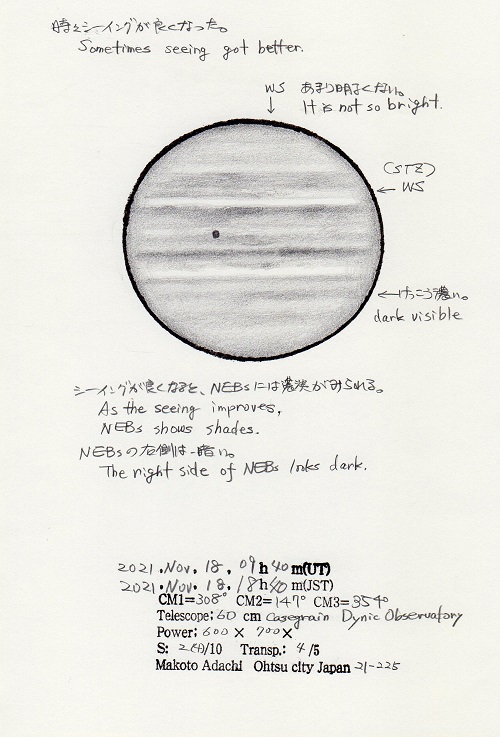 時々シーイングが良くなった。
Sometimes seeing got better.
WS あまり明るくない。
It is not so bright.
(STZ)
WS
けっこう濃い。
dark visible
シーイングが良くなると、NEBsには濃淡がみられる。
As the seeing improves,
NEBs shows shades.
NEBsの右側は暗い。
The right side of NEBs looks dark.
2021.Nov.18.09h40m(UT)
2021.Nov.18.18h40m(JST)
CM1=308° CM2=147° CM3=354°
Telescope:60 cm Casegrain Dynic Observatory
Power:600× 700×
S: 2(4)/10 Transp.: 4/5
Makoto Adachi Ohtsu city Japan 21-225